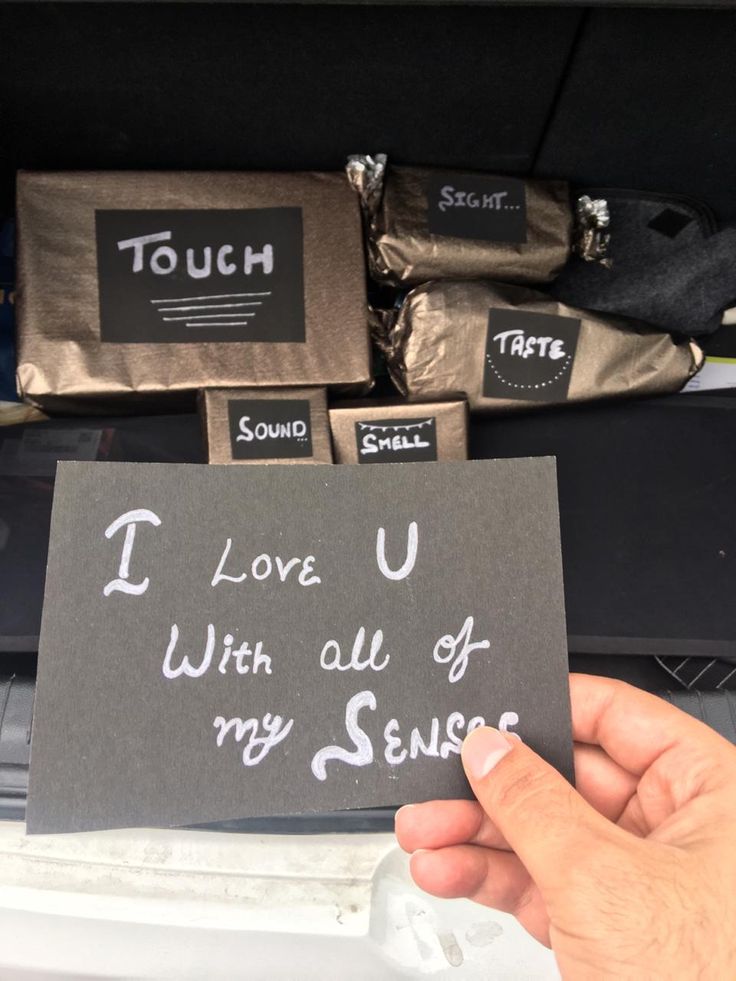 TOUCH
SIGHT...
TASTE
SOUND
SMELL
I Love U
With all of
my SENSES